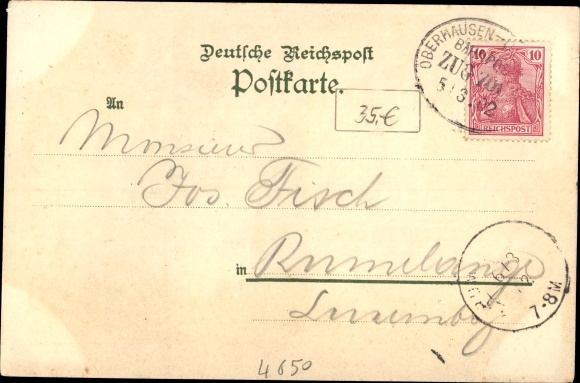 Deutsche Reichspost
Postkarte.
OBERHAUSEN-
BAHNPOST
ZUG
5/3 02
10
REICHSPOST
35,-€
An
Monsieur
Jos. Fisch
in Rumelange
Luxembg
RUM
6/3
7-8 M.
4650